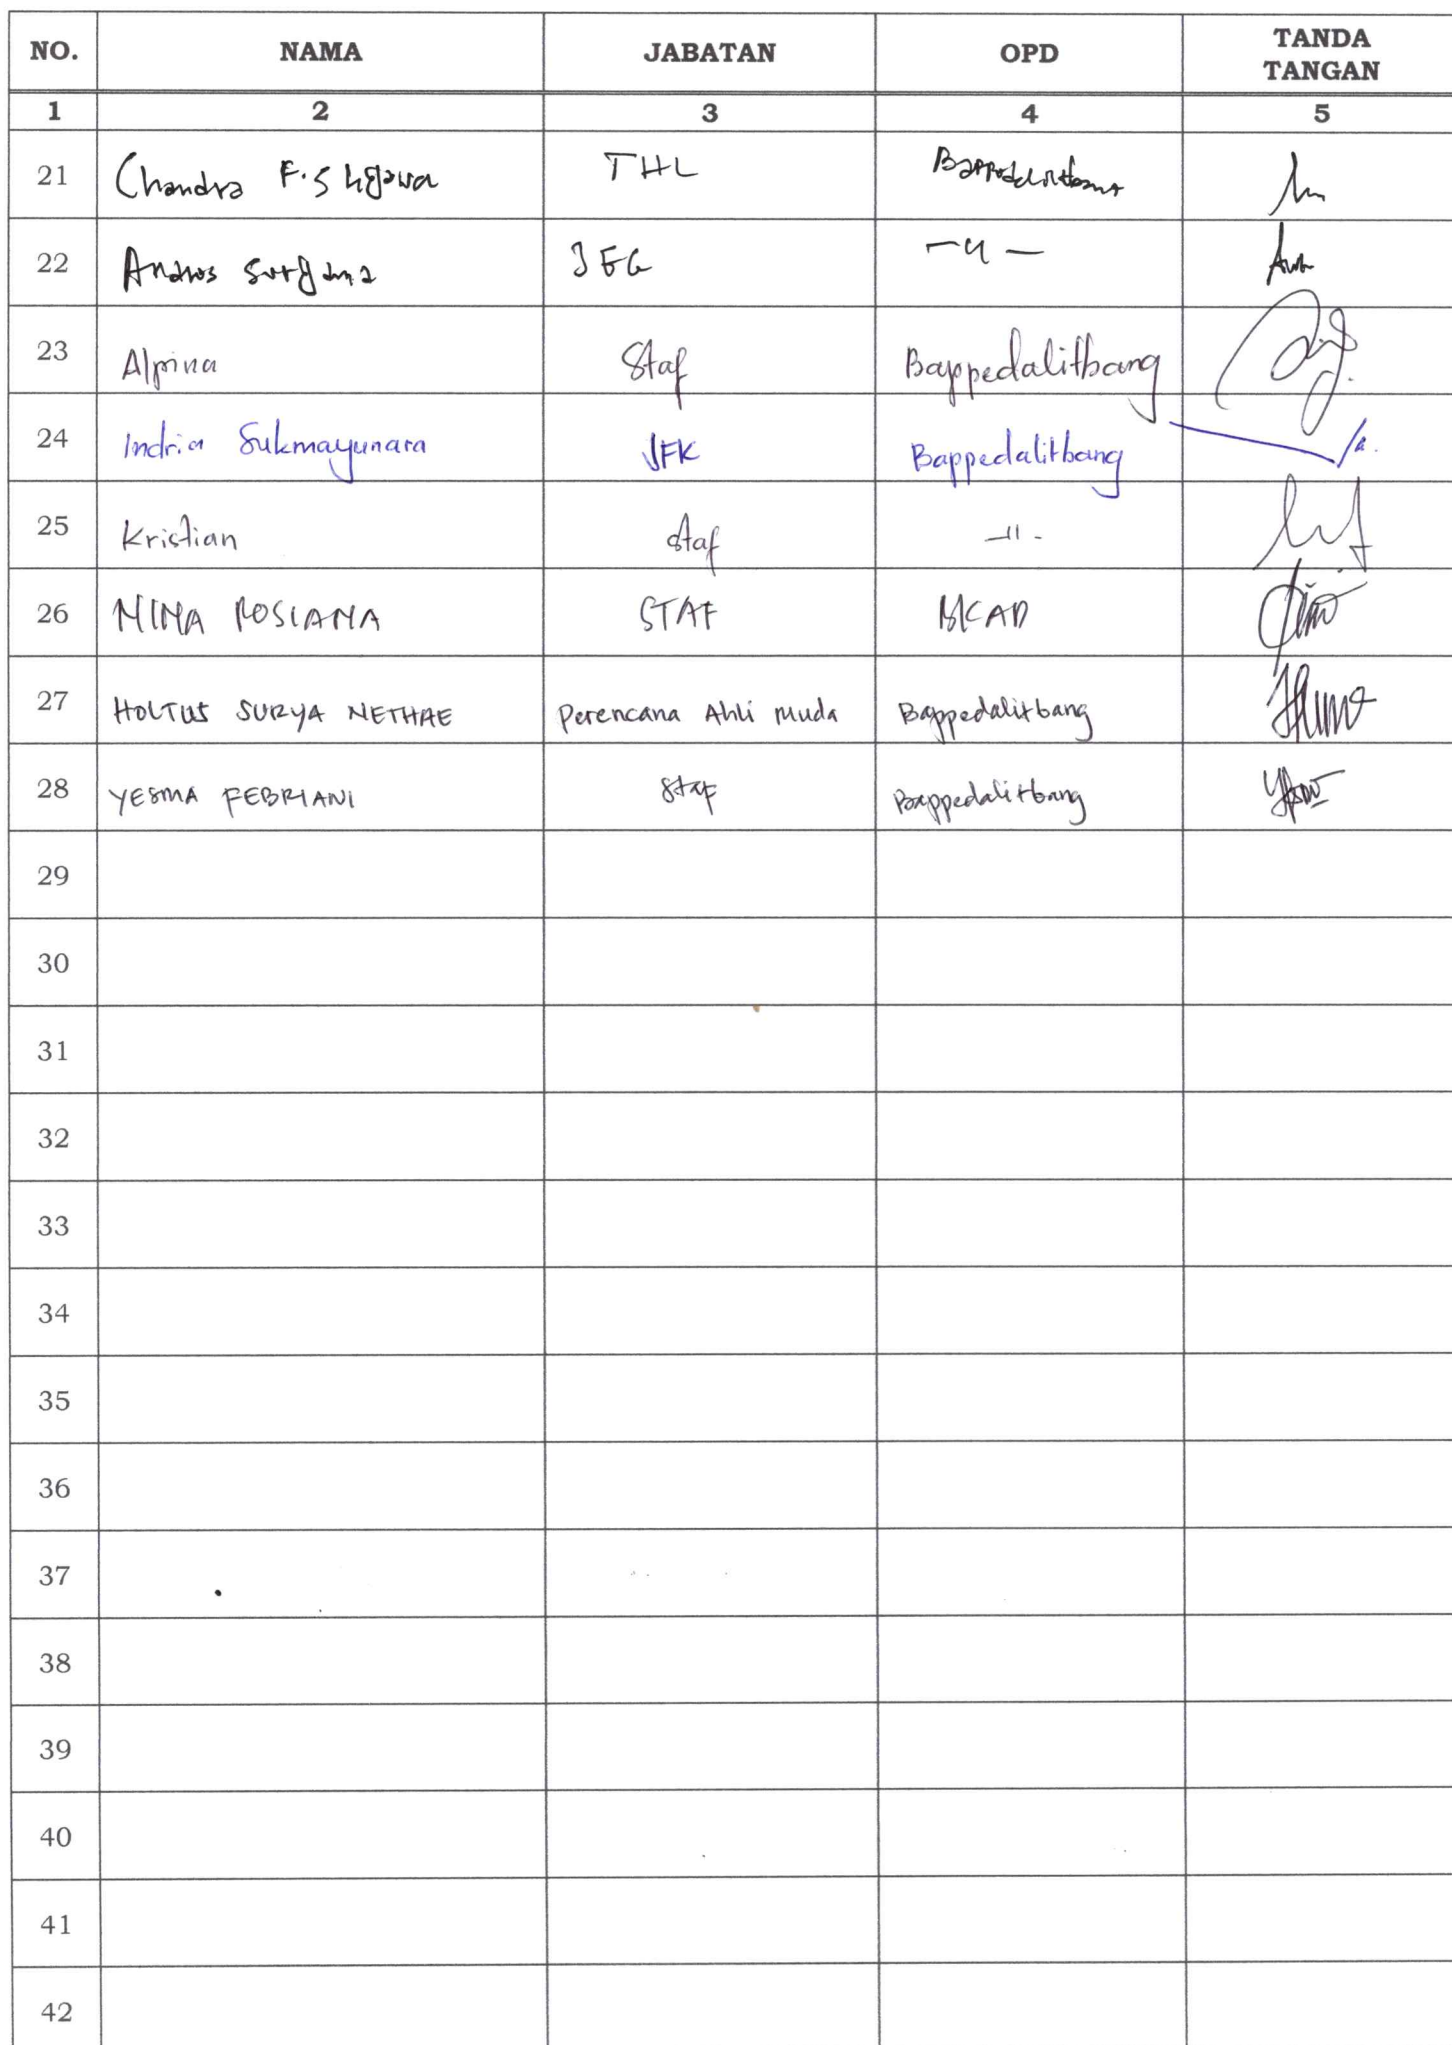 NO. NAMA JABATAN OPD TANDA TANGAN
1 2 3 4 5
21 Chandra F.S THL Bappedalitbang
22 JFG
23 Alpina Staf Bappedalitbang
24 Indria Sukmayunara JFK Bappedalitbang
25 Kristian Staf -11-
26 NINA ROSIANA STAF BKAD
27 HOLTUS SURYA NETHAE Perencana Ahli Muda Bappedalitbang
28 YESMA FEBRIANI Staf Bappedalitbang
29
30
31
32
33
34
35
36
37
38
39
40
41
42